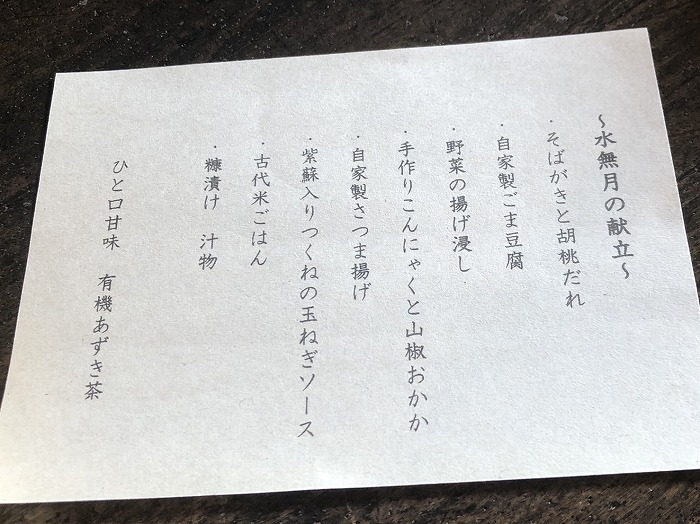 ～水無月の献立～
・そばがきと胡桃だれ
・自家製ごま豆腐
・野菜の揚げ浸し
・手作りこんにゃくと山椒おかか
・自家製さつま揚げ
・紫蘇入りつくねの玉ねぎソース
・古代米ごはん
・糠漬け 汁物
ひと口甘味 有機あずき茶